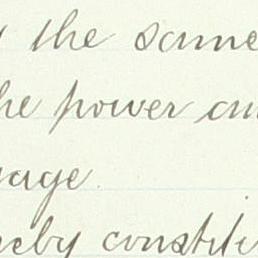 the same
the power an
age
eby constit